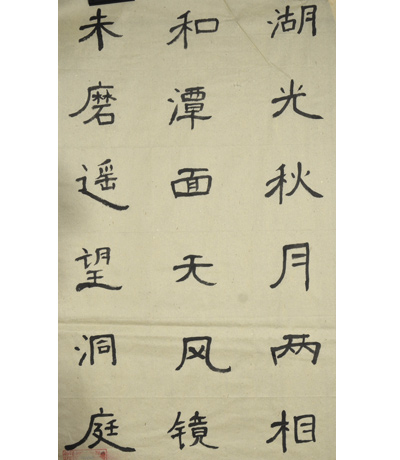 湖光秋月两相
和潭面无风镜
未磨遥望洞庭